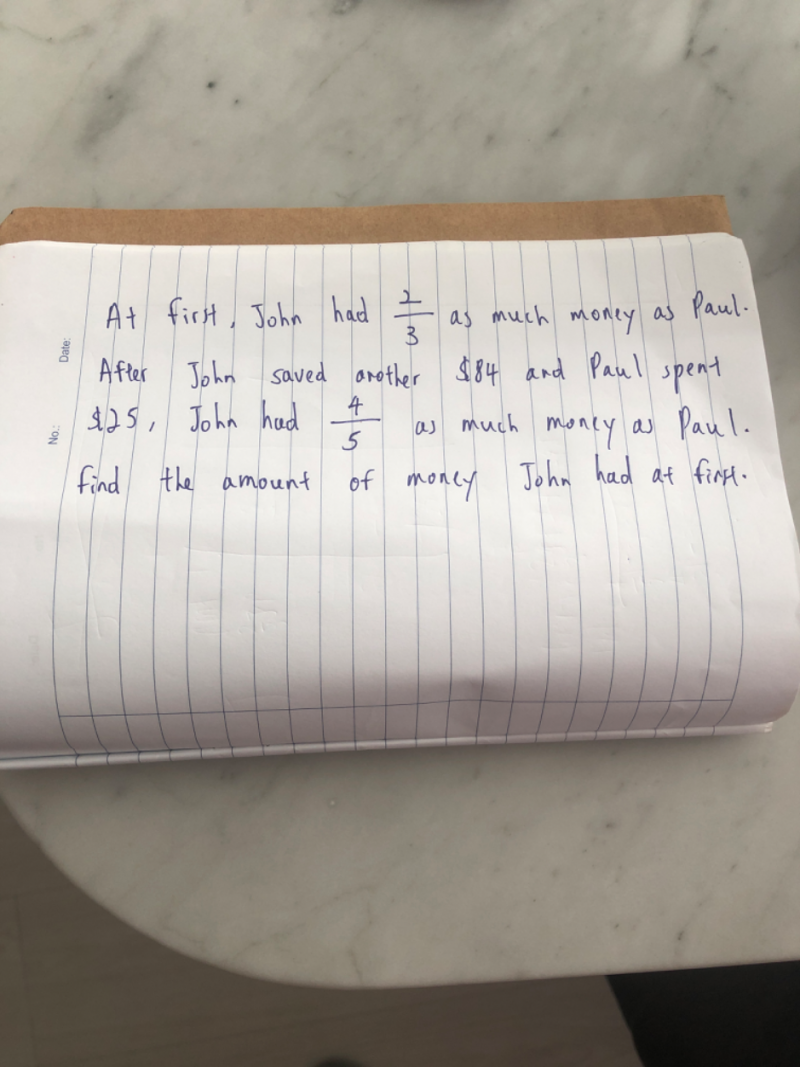 At first, John had 2/3 as much money as Paul.
After John saved another $84 and Paul spent
$25, John had 4/5 as much money as Paul.
find the amount of money John had at first.
Date:
No.: